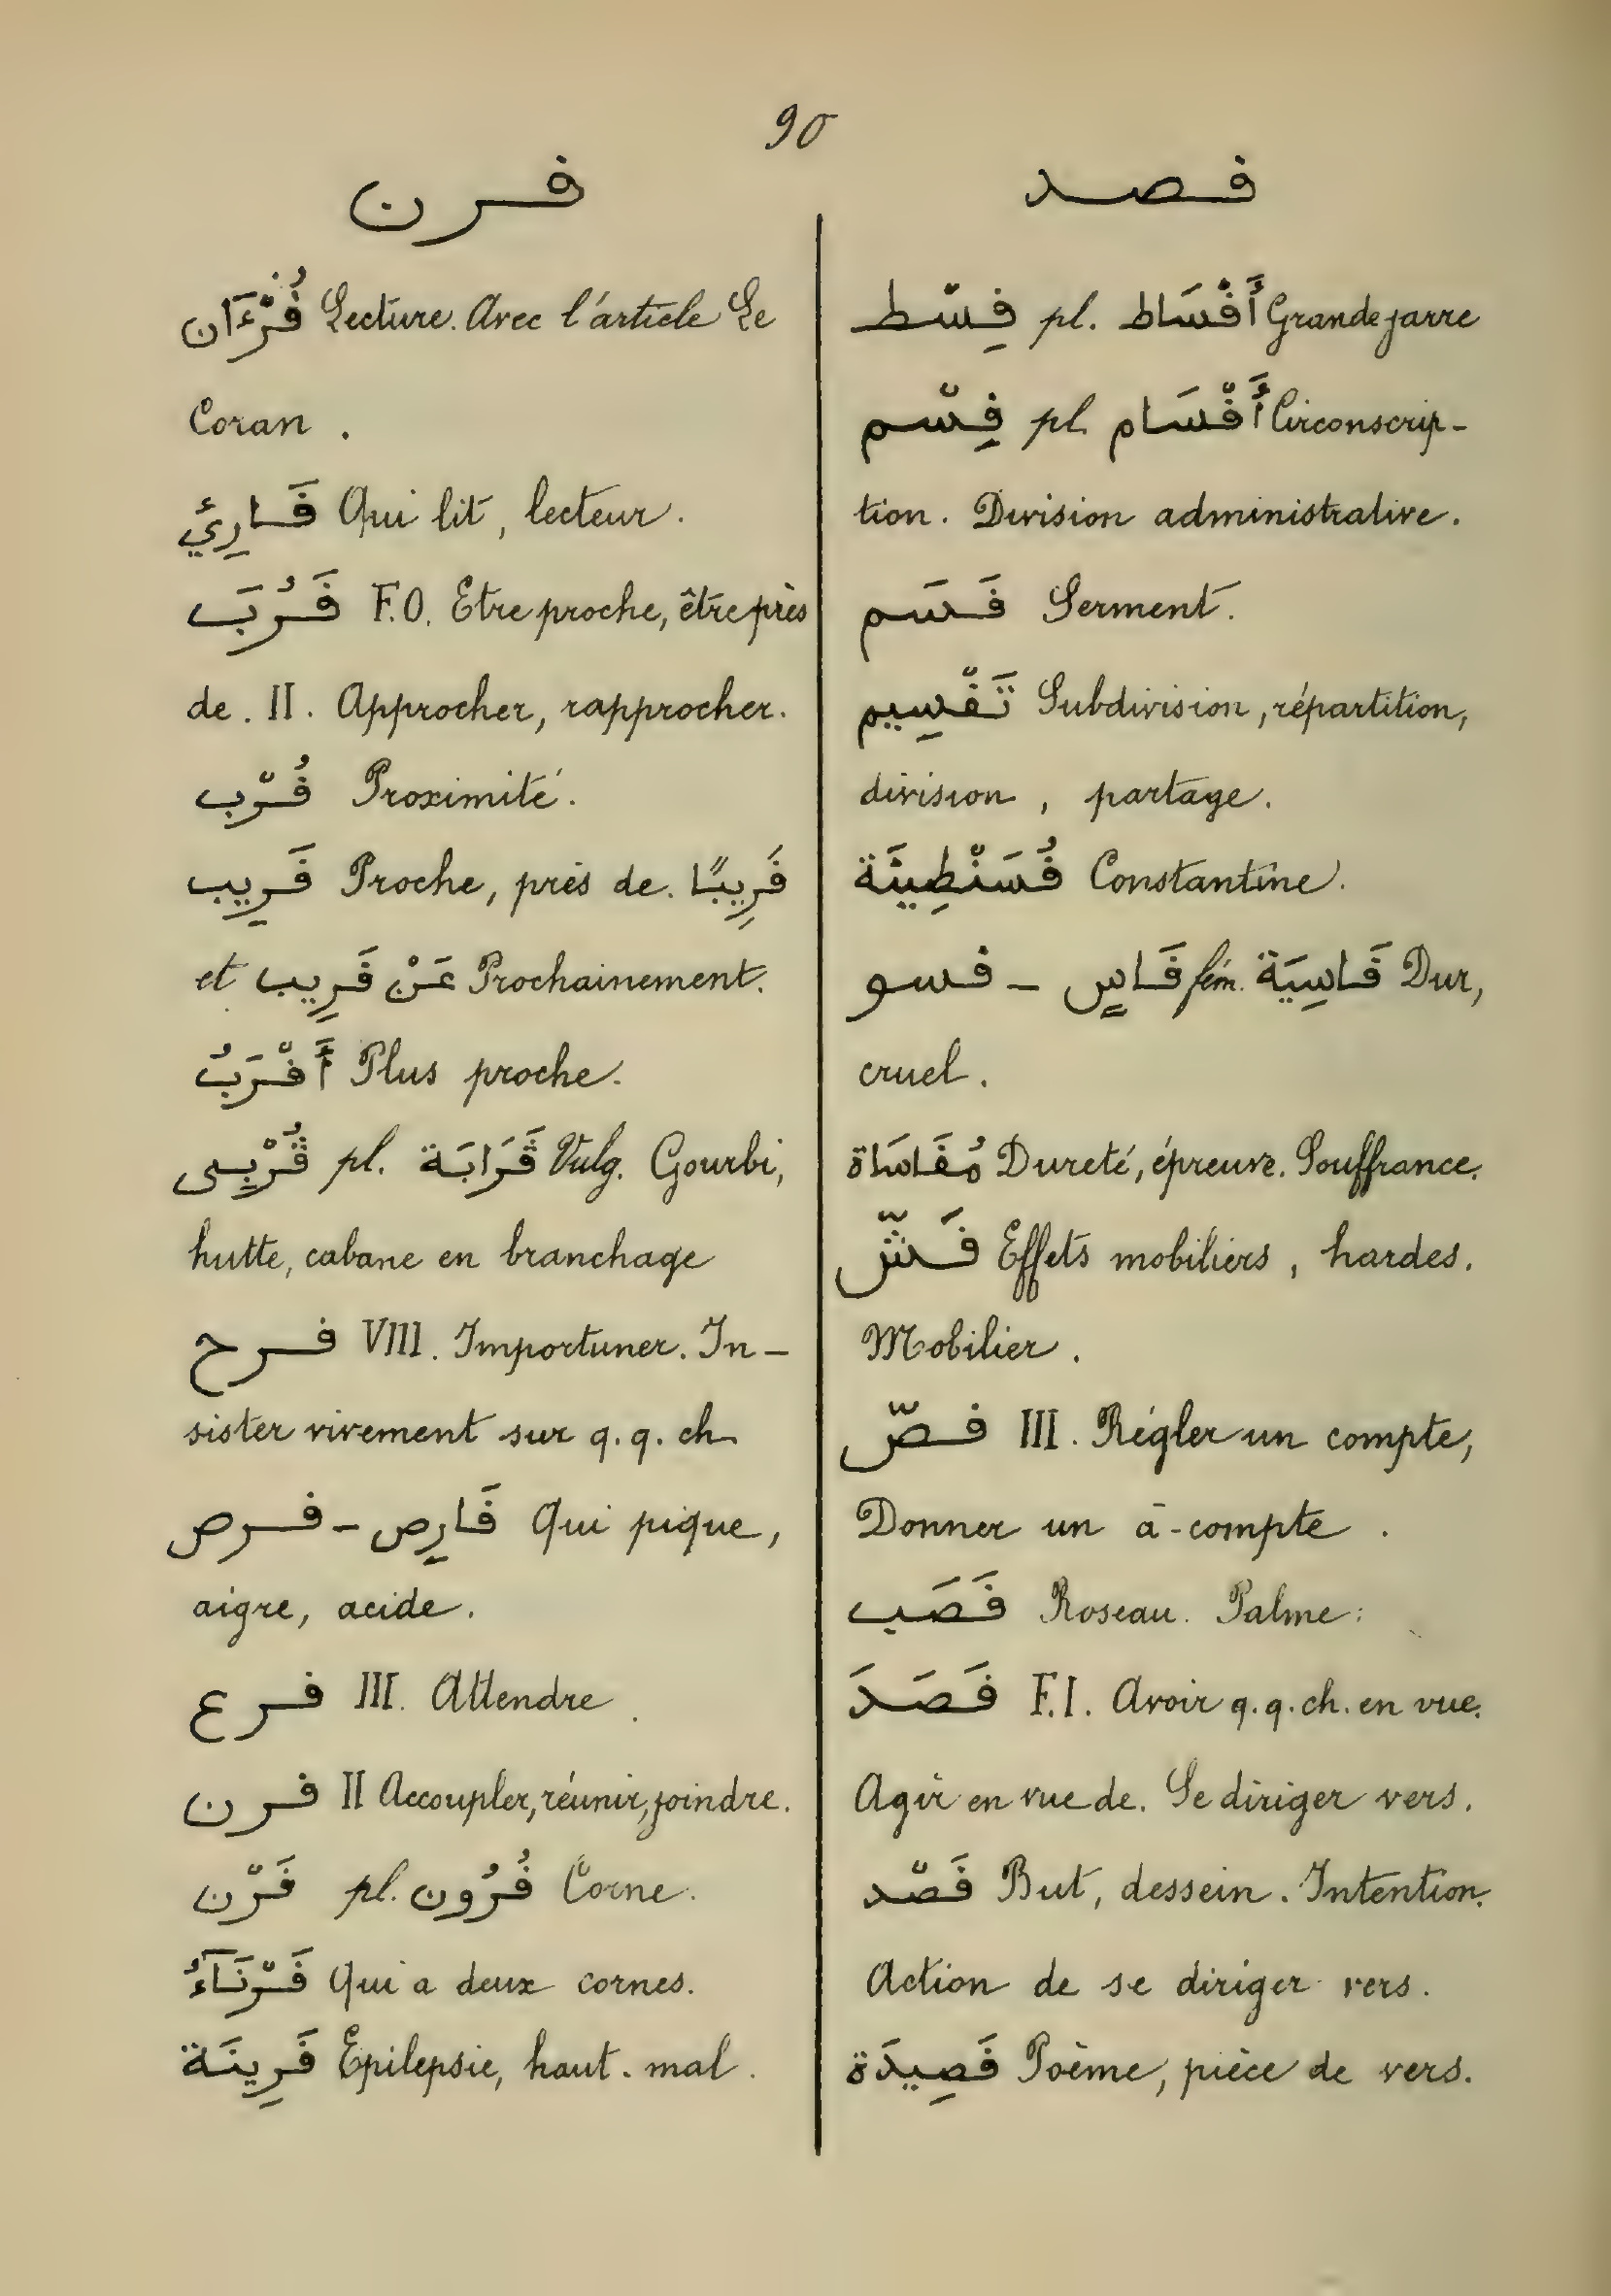 90
ڧرن
ڧُرْءَان Lecture. Avec l'article Le
Coran.
ڧَارِئ Qui lit, lecteur.
ڧَرُبَ F.O. Etre proche, être près
de. II. Approcher, rapprocher.
ڧُرْب Proximité.
ڧَرِيب Proche, près de. ڧَرِيبًا
et عَنْ ڧَرِيب Prochainement.
أَڧْرَبُ Plus proche.
ڨُرْبِى pl. ڨَرَابَة Vulg. Gourbi,
hutte, cabane en branchage
ڧرح VIII. Importuner. In-
sister vivement sur q.q. ch.
ڧرص - ڧَارِص Qui pique,
aigre, acide.
ڧرع III. Attendre.
ڧرن II Accoupler, réunir, joindre.
ڧَرْن pl. ڧُرُون Corne.
ڧَرْنَآءُ Qui a deux cornes.
ڧَرِينَة Epilepsie, haut-mal.
ڧصد
ڧِسْط pl. أَڧْسَاط Grande jarre
ڧِسْم pl. أَڧْسَام Circonscrip-
tion. Division administrative.
ڧَسَم Serment.
تَڧْسِيم Subdivision, répartition,
division, partage.
ڧُسَنْطِينَة Constantine.
ڧسو - ڧَاسٍ fém. ڧَاسِيَة Dur,
cruel.
مُڧَاسَاة Dureté, épreuve. Souffrance.
ڧَشّ Effets mobiliers, hardes.
Mobilier.
ڧصّ III. Régler un compte,
Donner un à-compte.
ڧَصَب Roseau. Palme.
ڧَصَدَ F.I. Avoir q.q.ch. en vue.
Agir en vue de. Se diriger vers.
ڧَصْد But, dessein. Intention.
Action de se diriger vers.
ڧَصِيدَة Poème, pièce de vers.